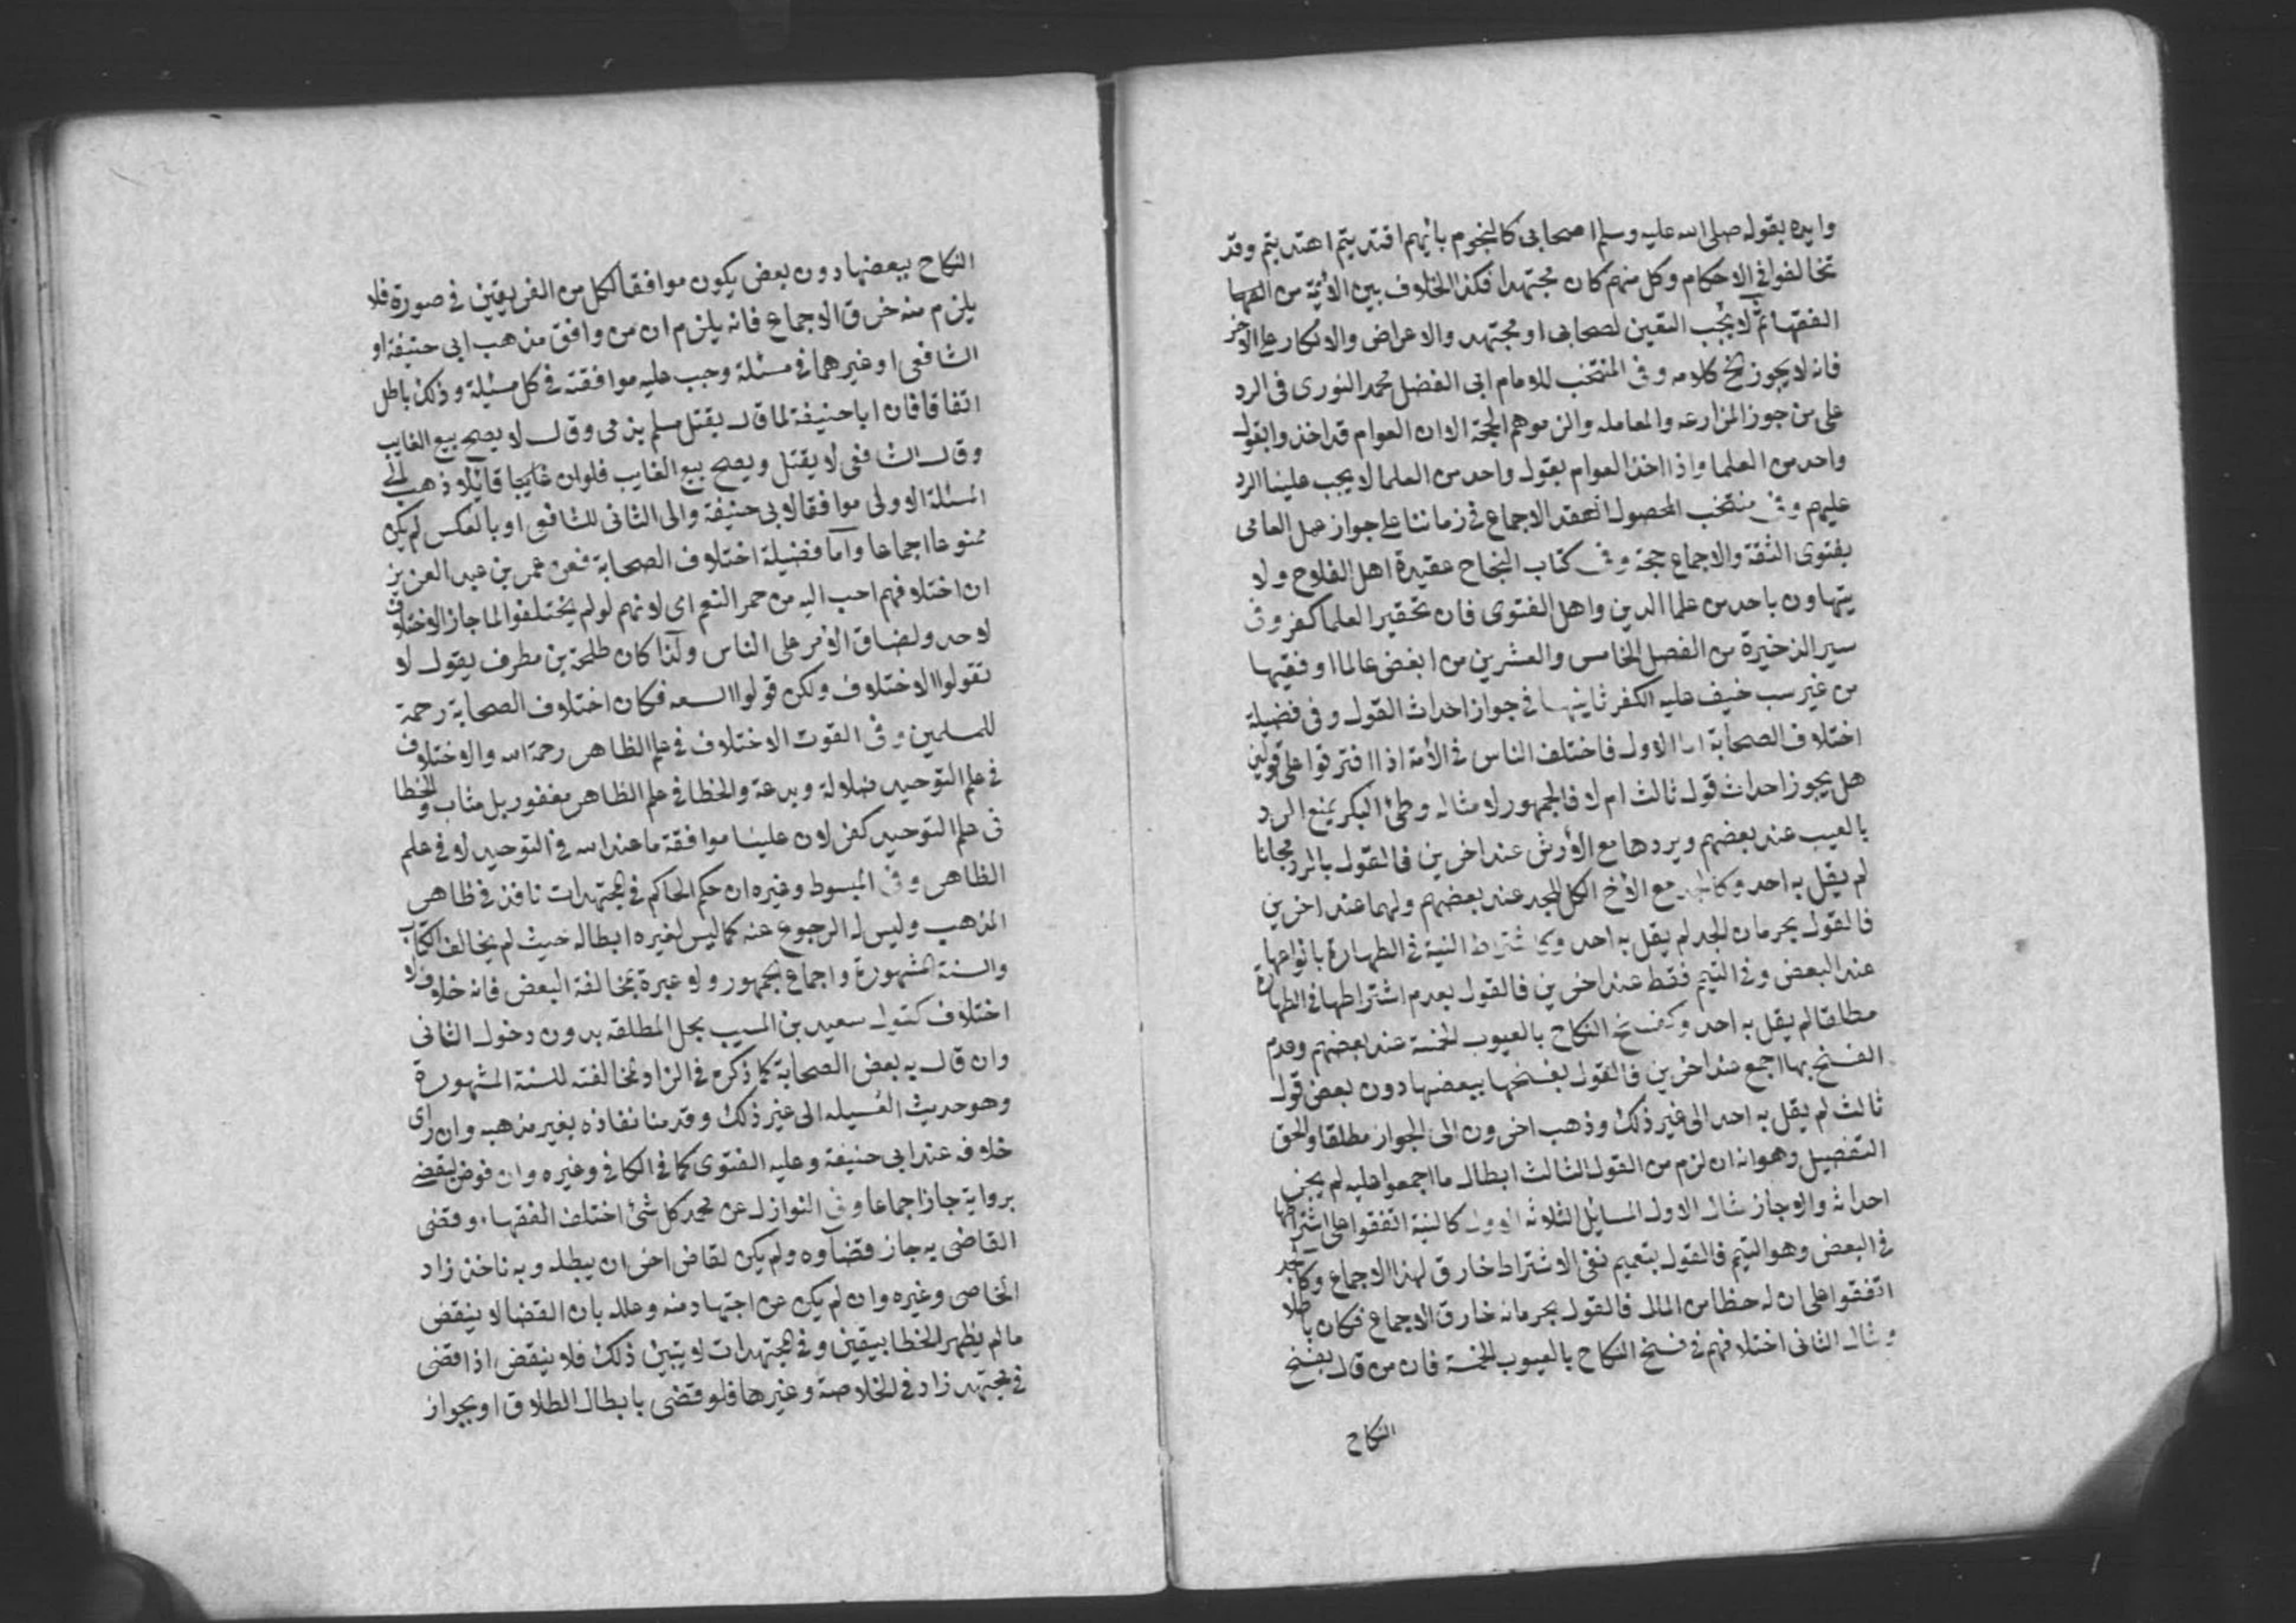 وايده بقوله صلى الله عليه وسلم اصحابى كالنجوم بأيهم اقتديتم اهتديتم وقد
تخالفوا فى الاحكام وكل منهم كان مجتهدا فكذا الخلاف بين الأئمة من
الفقها ثم لا يجب التعين لصحابى او مجتهد والاعراض والانكار على الاخر
فانه لا يجوز كلامه وفى المنتخب للامام ابى الفضل محمد النورى فى الرد
على من جوز المزارعه والمعامله والزموهم الحجة الا ان العوام قد اخذوا بقول
واحد من العلما واذا اخذ العوام بقول واحد من العلما لا يجب علينا الرد
عليهم وفى منتخب المحصول انعقد الاجماع فى زماننا على جواز عمل العامى
بفتوى الثقة والاجماع حجة وفى كتاب النجاح عقيدة اهل الفلاح ولا
يتهاون باحد من علما الدين واهل الفتوى فان تحقير العلما كفر وفى
سير الذخيرة من الفصل الخامس والعشرين من ابغض عالما او فقيها
من غير سبب خيف عليه الكفر ثانيها فى جواز احداث القول وفى فضيلة
اختلاف الصحابة اما الاول فاختلف الناس فى الأمة اذا افترقوا على قولين
هل يجوز احداث قول ثالث ام لا فالجمهور لا مثاله وطئ البكر يمنع الرد
بالعيب عند بعضهم ويردها مع الأرش عند اخرين فالقول بالرد مجانا
لم يقل به احد وكالجد مع الأخ الكل للجد عند بعضهم ولهما عند اخرين
فالقول بحرمان الجد لم يقل به احد وكاشتراط النية فى الطهارة بانواعها
عند البعض وفى التيمم فقط عند اخرين فالقول بعدم اشتراطها فى الطهارة
مطلقا لم يقل به احد وكفسخ النكاح بالعيوب الخمسة عند بعضهم وعدم
الفسخ بها اجمع عند اخرين فالقول بفسخها ببعضها دون بعض قول
ثالث لم يقل به احد الى غير ذلك وذهب اخرون الى الجواز مطلقا والحق
التفصيل وهو انه ان لزم من القول الثالث ابطال ما اجمعوا عليه لم يجز
احداثه والا جاز مثال الاول المسايل الثلاثه الاول كالنية اتفقوا على اشتراطها
فى البعض وهو التيمم فالقول بتعميم نفى الاشتراط خارق لهذا الاجماع وكالجد
اتفقوا على ان له حظا من المال فالقول بحرمانه خارق الاجماع فكان باطلا
ومثال الثانى اختلافهم فى فسخ النكاح بالعيوب الخمسة فان من قال بفسخ
النكاح
النكاح ببعضها دون بعض يكون موافقا لكل من الفريقين فى صورة فلا
يلزم منه خرق الاجماع فانه يلزم ان من وافق مذهب ابى حنيفة او
الشافعى او غيرهما فى مسئلة وجب عليه موافقته فى كل مسئلة وذلك باطل
اتفاقا فان ابا حنيفة لما قال يقتل مسلم بذمى وقال لا يصح بيع الغايب
وقال الشافعى لا يقتل ويصح بيع الغايب فلو ان قائلا ذهب الى
المسئلة الاولى موافقا لابى حنيفة والى الثانى للشافعى او بالعكس لم يكن
ممنوعا اجماعا وأما فضيلة اختلاف الصحابة فعن عمر بن عبد العزيز
ان اختلافهم احب اليه من حمر النعم اى لانهم لو لم يختلفوا لما جاز الاختلاف
لاحد ولضاق الأمر على الناس ولذا كان طلحة بن مطرف يقول لا
تقولوا الاختلاف ولكن قولوا السعه فكان اختلاف الصحابة رحمة
للمسلمين وفى القوت الاختلاف فى علم الظاهر رحمة الله والاختلاف
فى علم التوحيد ضلالة وبدعة والخطا فى علم الظاهر مغفور بل مثاب والخطا
فى علم التوحيد كفر لان علينا موافقة ما عند الله فى التوحيد لا فى علم
الظاهر وفى المبسوط وغيره ان حكم الحاكم فى المجتهدات نافذ فى ظاهر
المذهب وليس له الرجوع عنه كما ليس لغيره ابطاله حيث لم يخالف الكتاب
والسنة المشهورة واجماع الجمهور ولا عبرة بمخالفة البعض فانه خلاف لا
اختلاف كقول سعيد بن المسيب بحل المطلقه بدون دخول الثانى
وان قال به بعض الصحابة كما ذكره فى الزاد لمخالفته للسنة المشهورة
وهو حديث العسيله الى غير ذلك وقدمنا نفاذه بغير مذهبه وان رأى
خلافه عند ابى حنيفة وعليه الفتوى كما فى الكافى وغيره وان فوض ليقضى
برواية جاز اجماعا وفى النوازل عن محمد كل شئ اختلف الفقهاء وقضى
القاضى به جاز قضآوه ولم يكن لقاض اخر ان يبطله وبه ناخذ زاد
الخاصى وغيره وان لم يكن عن اجتهاد منه وعلله بان القضا لا ينقض
ما لم يظهر الخطا بيقين وفى المجتهدات لا يتبين ذلك فلا ينقض اذا قضى
فى مجتهد زاد فى الخلاصة وغيرها فلو قضى بابطال الطلاق او بجواز